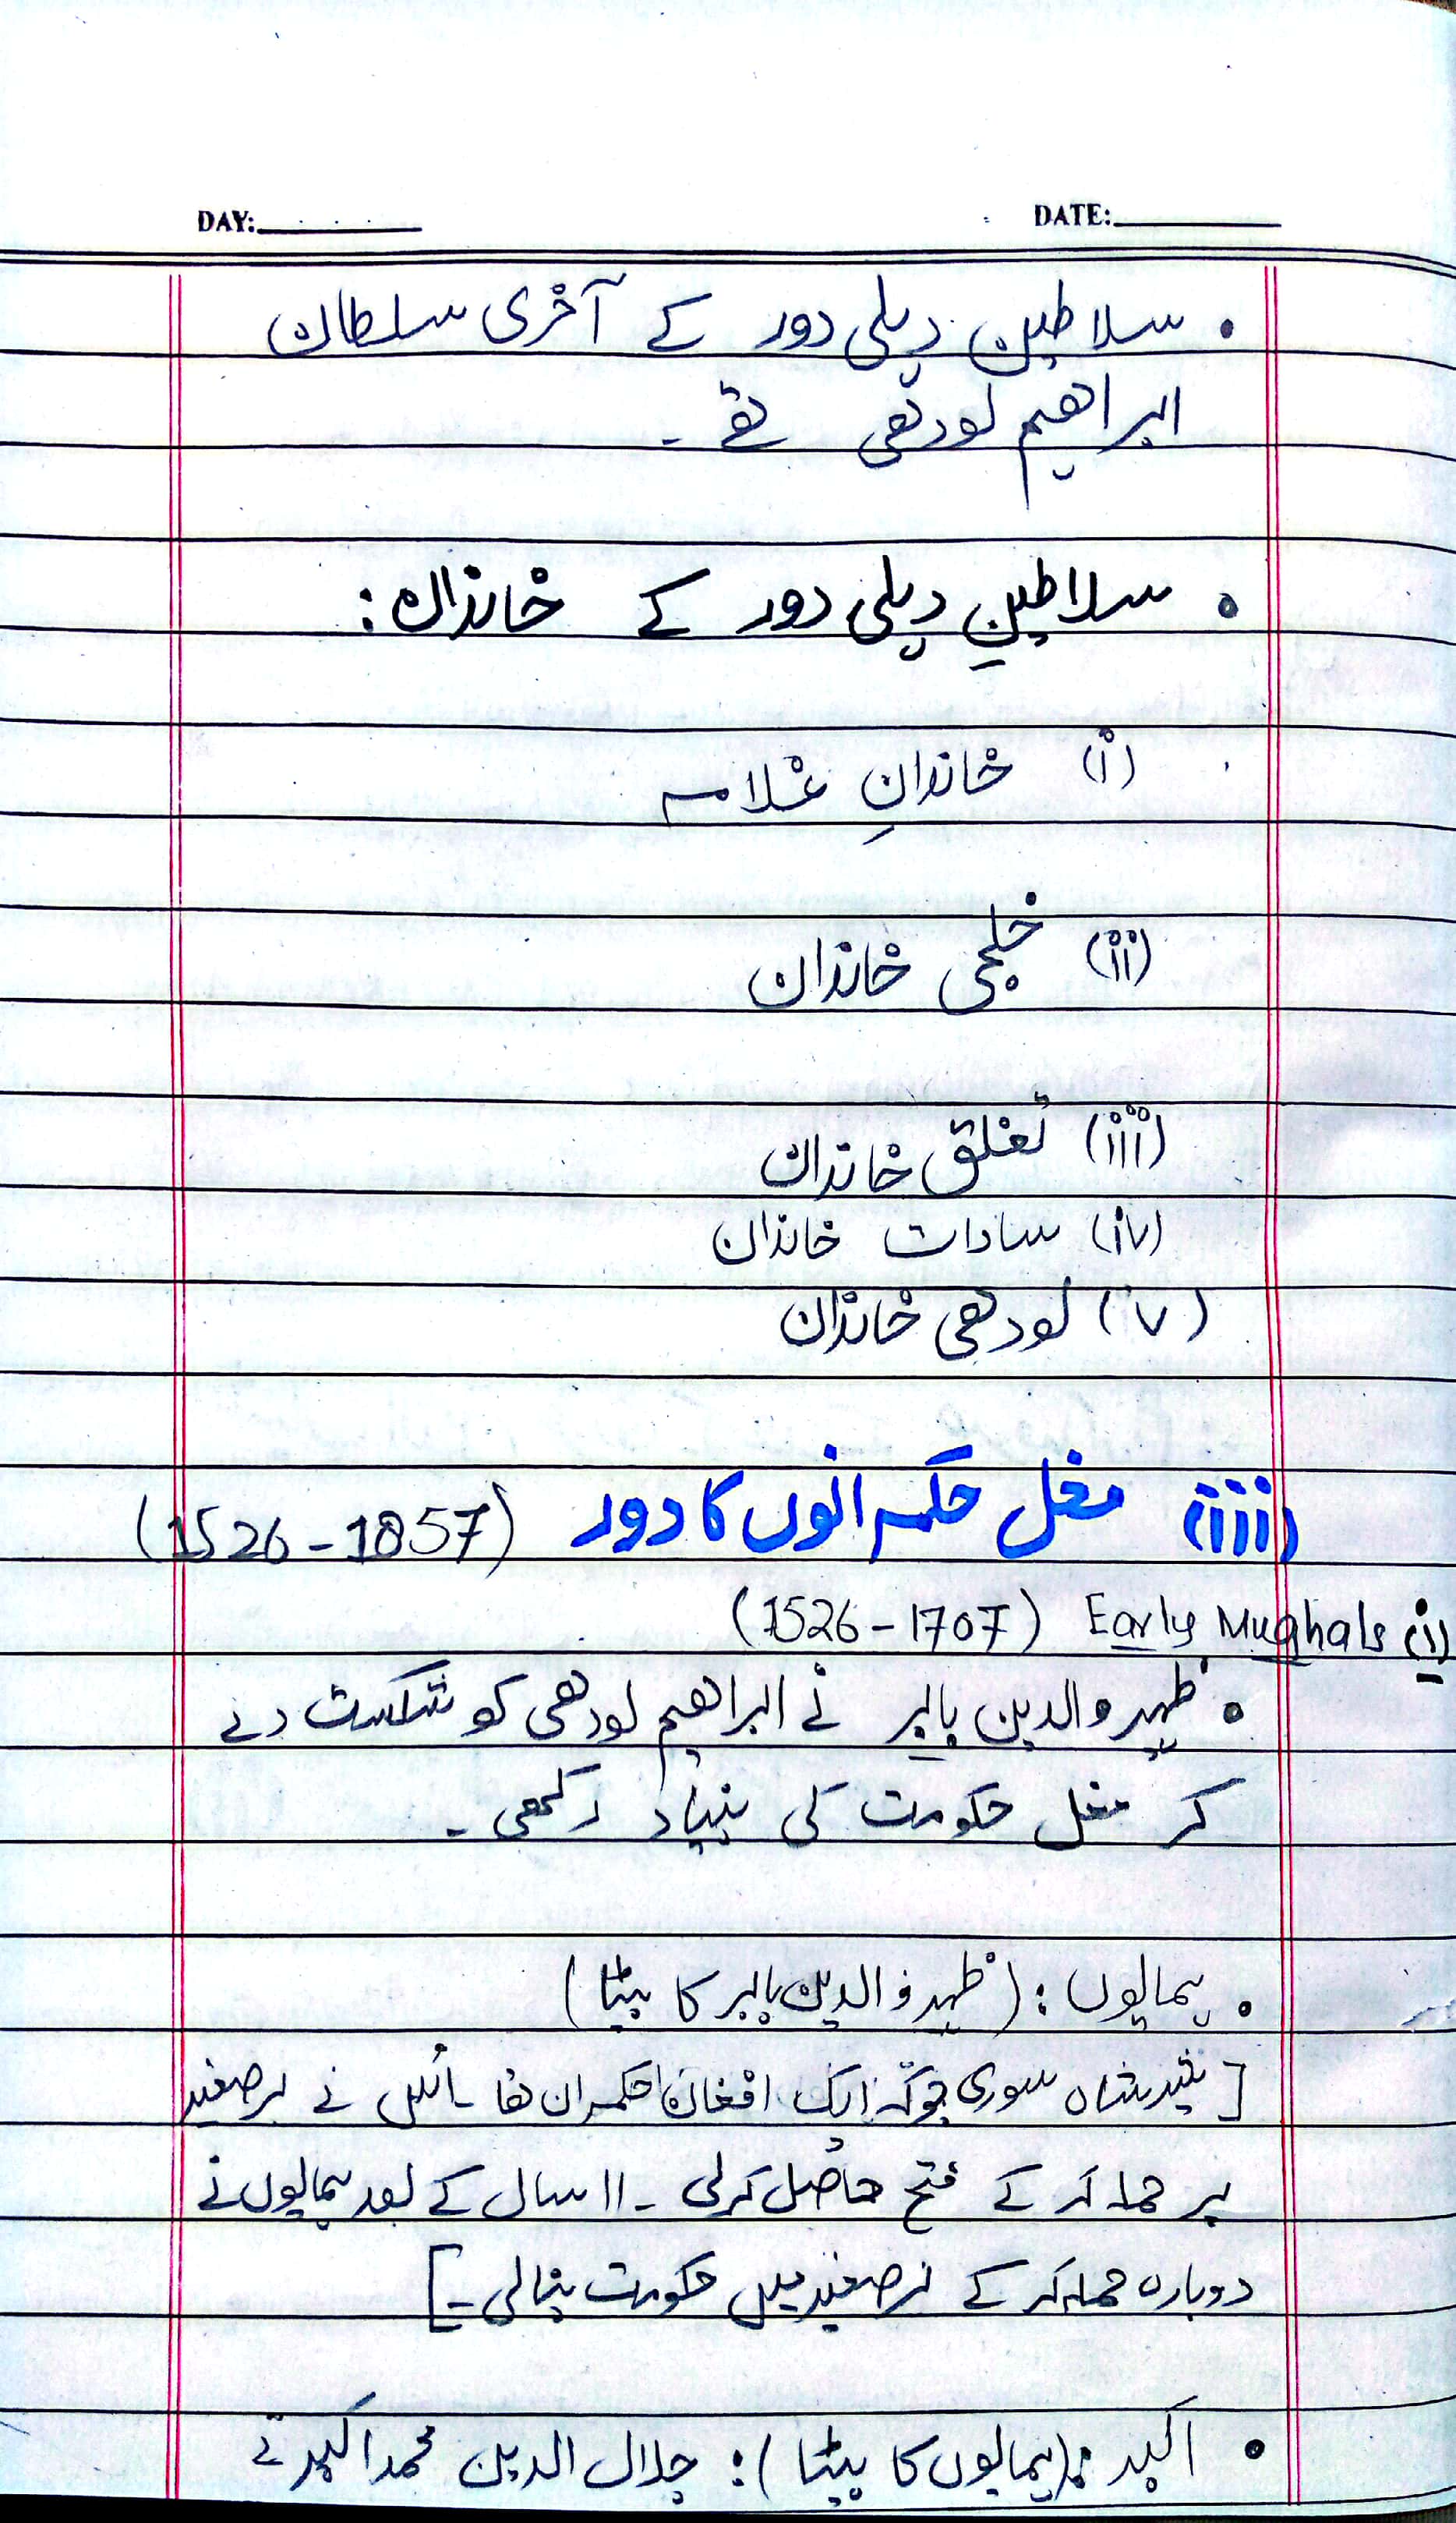 DAY: DATE:
• سلاطینِ دہلی دور کے آخری سلطان
ابراھیم لودھی تھے۔
• سلاطینِ دہلی دور کے خاندان:
(i) خاندانِ غلامہ
(ii) خلجی خاندان
(iii) تغلق خاندان
(iv) سادات خاندان
(v) لودھی خاندان
(iii) مغل حکمرانوں کا دور (1526-1857)
(i) Early Mughals (1526-1707)
• ظہیروالدین بابر نے ابراھیم لودھی کو شکست دے
کر مغل حکومت کی بنیاد رکھی۔
• ہمایوں: (ظہیروالدین بابر کا بیٹا)
[شیر شاہ سوری جوکہ ایک افغان حکمران تھا۔ اُس نے برصغیر
پر حملہ کر کے فتح حاصل کرلی۔ 11 سال کے بعد ہمایوں نے
دوبارہ حملہ کر کے برصغیر میں حکومت بنالی۔]
• اکبر: (ہمایوں کا بیٹا): جلال الدین محمد اکبر نے